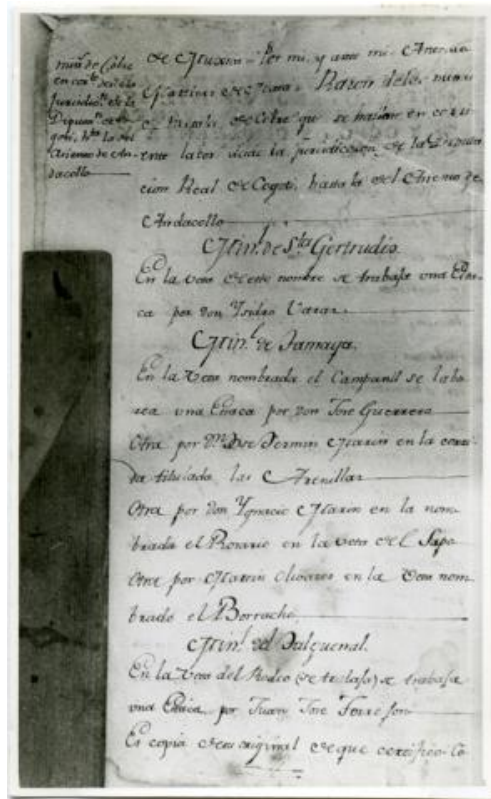 min.s de Cobre
en corte desde la
Jurisdicn. de la
Diputn. de Co-
goti, hta. la del
Asiento de An-
dacollo
de Por mi, y ante mi
Razon de los
de Cobre que se hallan en corri-
ente labor desde la jurisdiccion de la Diputa-
cion Real de Cogoti, hasta la del Asiento de
Andacollo
Minl. de Sta. Gertrudis.
En la veta de este nombre se trabaja una Esta-
ca por don Ysidro Varas.
Minl. de Tamaya.
En la Veta nombrada el Campanil se labo-
rea una Estaca por don Jose Guerrero
Otra por Dn. Jose Fermin Marin en la corri-
da titulada las Arenillas
Otra por don Ygnacio Marin en la nom-
brada el Rosario en la veta del Sapo
Otra por Martin Olivares en la Veta nom-
brada el Borracho.
Minl. del
En la Veta del Rodeo se trabaja
una Estaca por Juan Jose Torrejon
Es copia de su original de que certifico Co